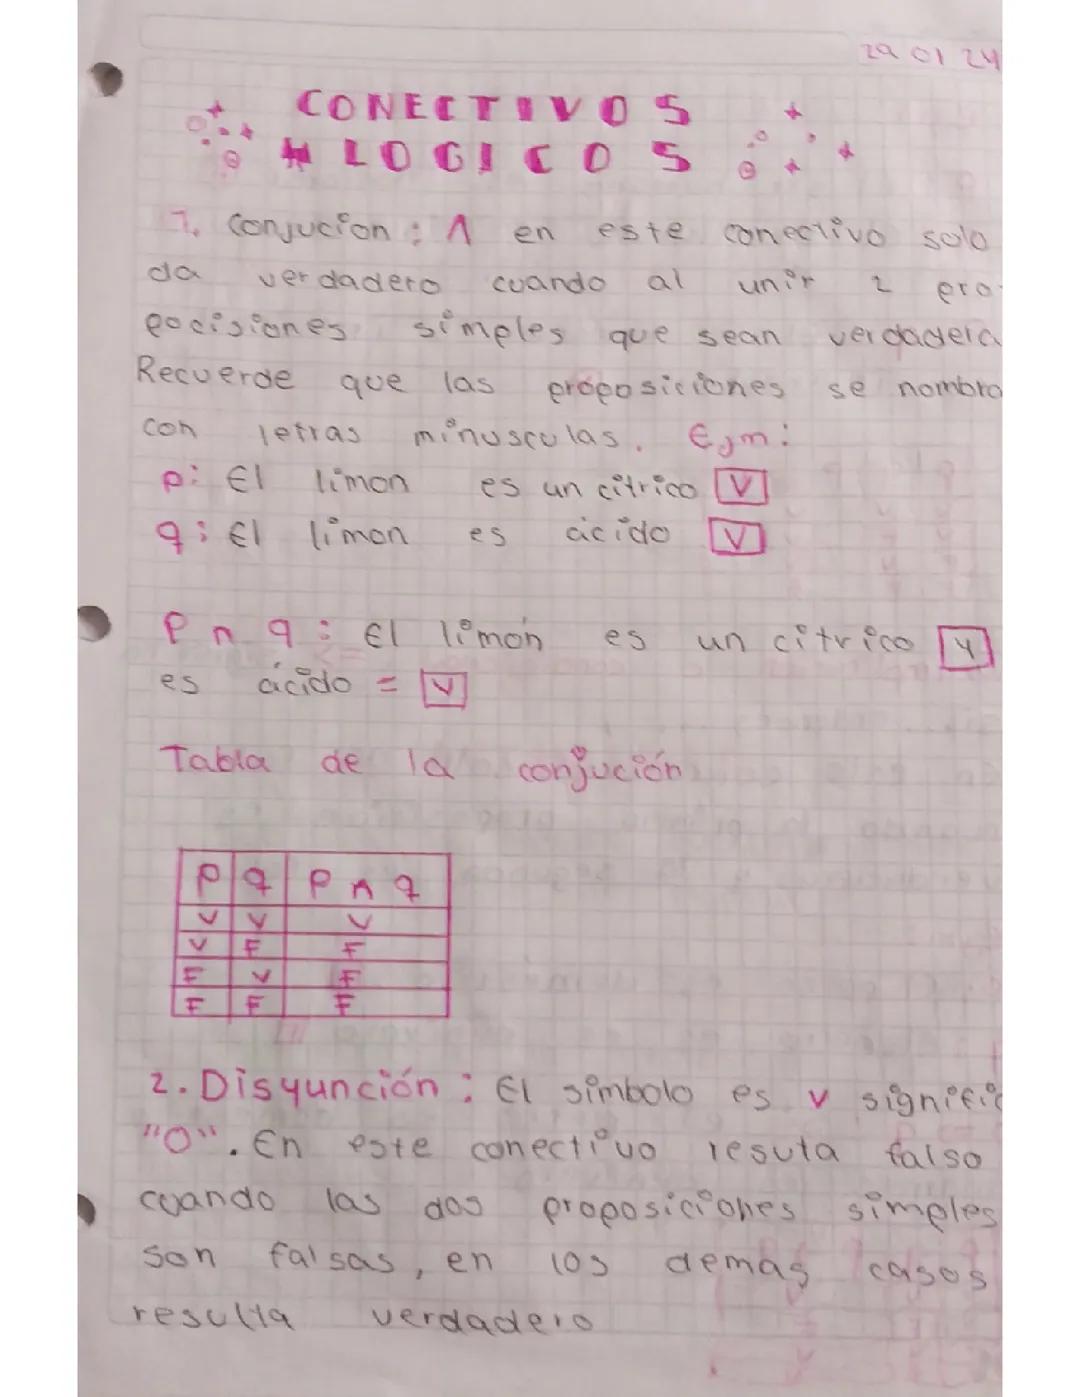 29 01 24
CONECTIVOS
LOGICOS
1. Conjucion : ∧ en este conectivo solo
da verdadero cuando al unir 2 pro-
pocisiones simples que sean verdadera
Recuerde que las proposiciones se nombra
con letras minusculas. Ejm:
p: El limon es un citrico V
q: El limon es ácido V
P ∩ q : El limón es un citrico y
es ácido = V
Tabla de la conjución
P q P ∩ q
V V V
V F F
F V F
F F F
2. Disyunción : El simbolo es v signific
"O". En este conectivo resuta falso
cuando las dos proposiciones simples
son falsas, en los demás casos
resulta verdadero